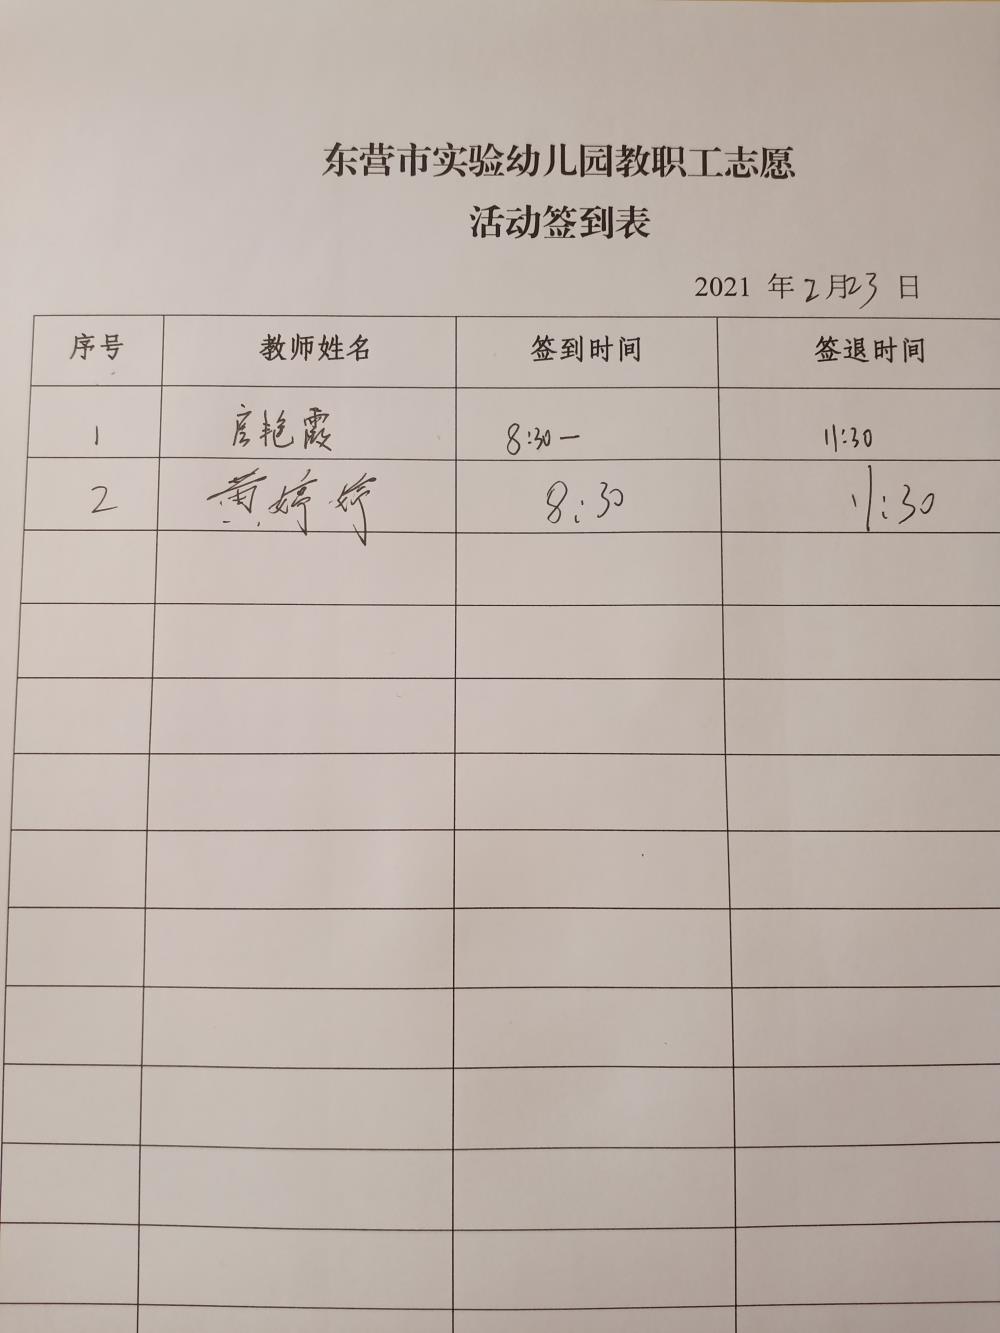 东营市实验幼儿园教职工志愿
活动签到表
2021 年 2月23 日
序号 教师姓名 签到时间 签退时间
1 艳霞 8:30— 11:30
2 黄婷婷 8:30 11:30